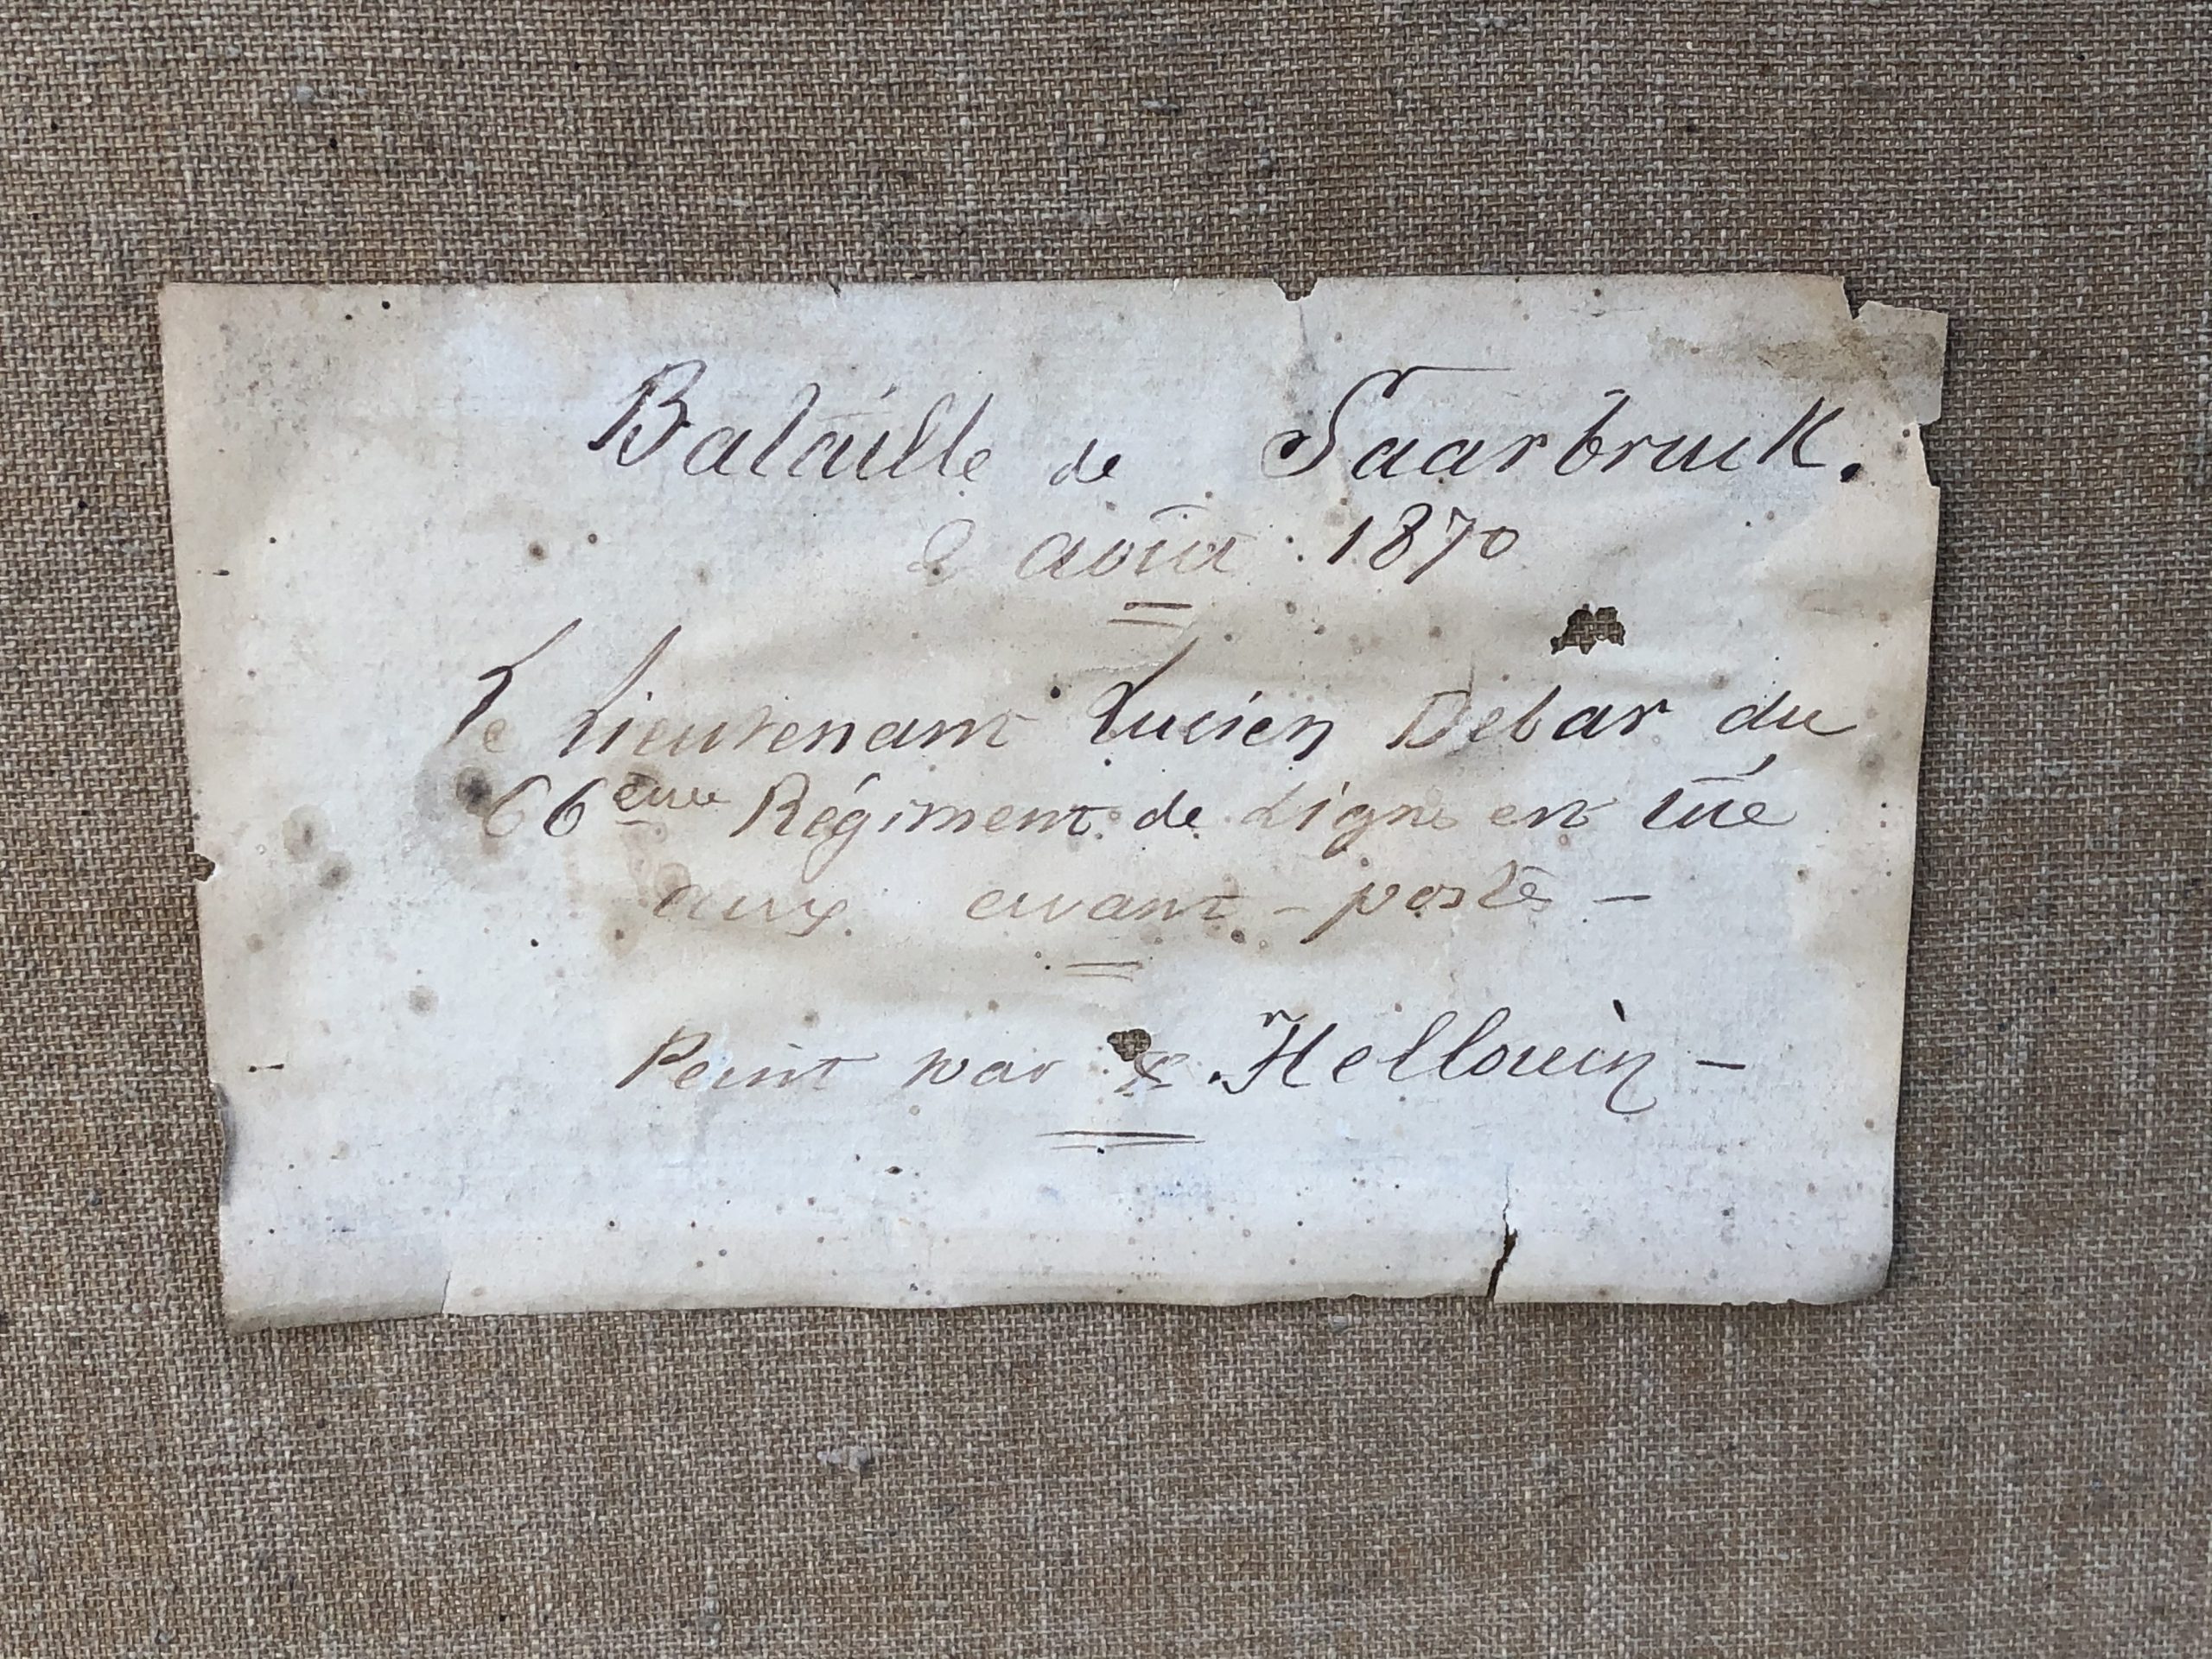 Bataille de Saarbruck.
2 août 1870
Le Lieutenant Lucien Debar du
66ème Régiment de Ligne est tué
aux avant-postes -
Peint par Hellouin -